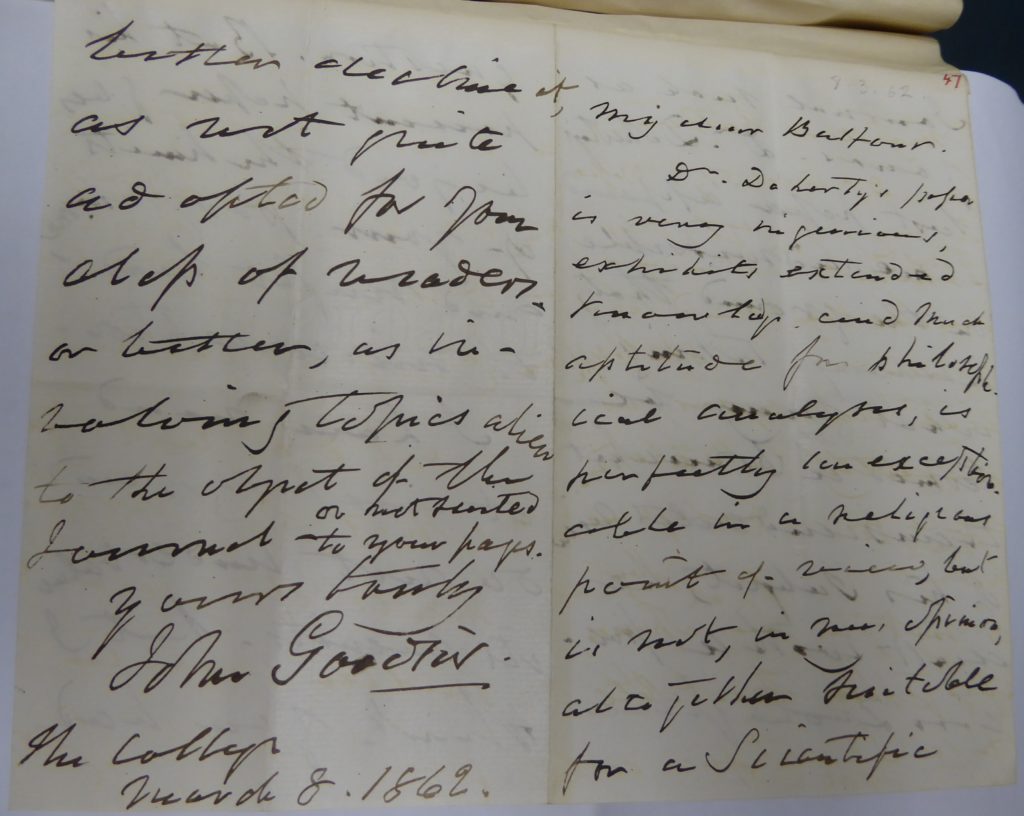 8.3.62.
47
My dear Balfour.
Dr. Doherty's paper
is very ingenious,
exhibits extended
knowledge and much
aptitude for philosoph-
ical analysis, is
perfectly unexception-
able in a religious
point of view, but
is not, in my opinion,
altogether suitable
for a Scientific
better decline it,
as not quite
adapted for your
class of readers.
or better, as in-
volving topics alien
to the object of the
Journal or not suited
to your pages.
yours truly
John Goodsir.
The College
March 8. 1862.